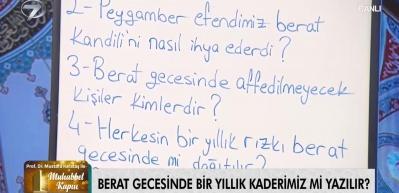 CANLI
7
2- Peygamber efendimiz berat
Kandili'ni nasıl ihya ederdi?
3- Berat gecesinde affedilmeyecek
kişiler kimlerdir?
4- Herkesin bir yıllık rızkı berat
gecesinde mi dağıtılır?
Prof. Dr. Mustafa Karataş ile
Muhabbet
Kapısı
BERAT GECESİNDE BİR YILLIK KADERİMİZ Mİ YAZILIR?